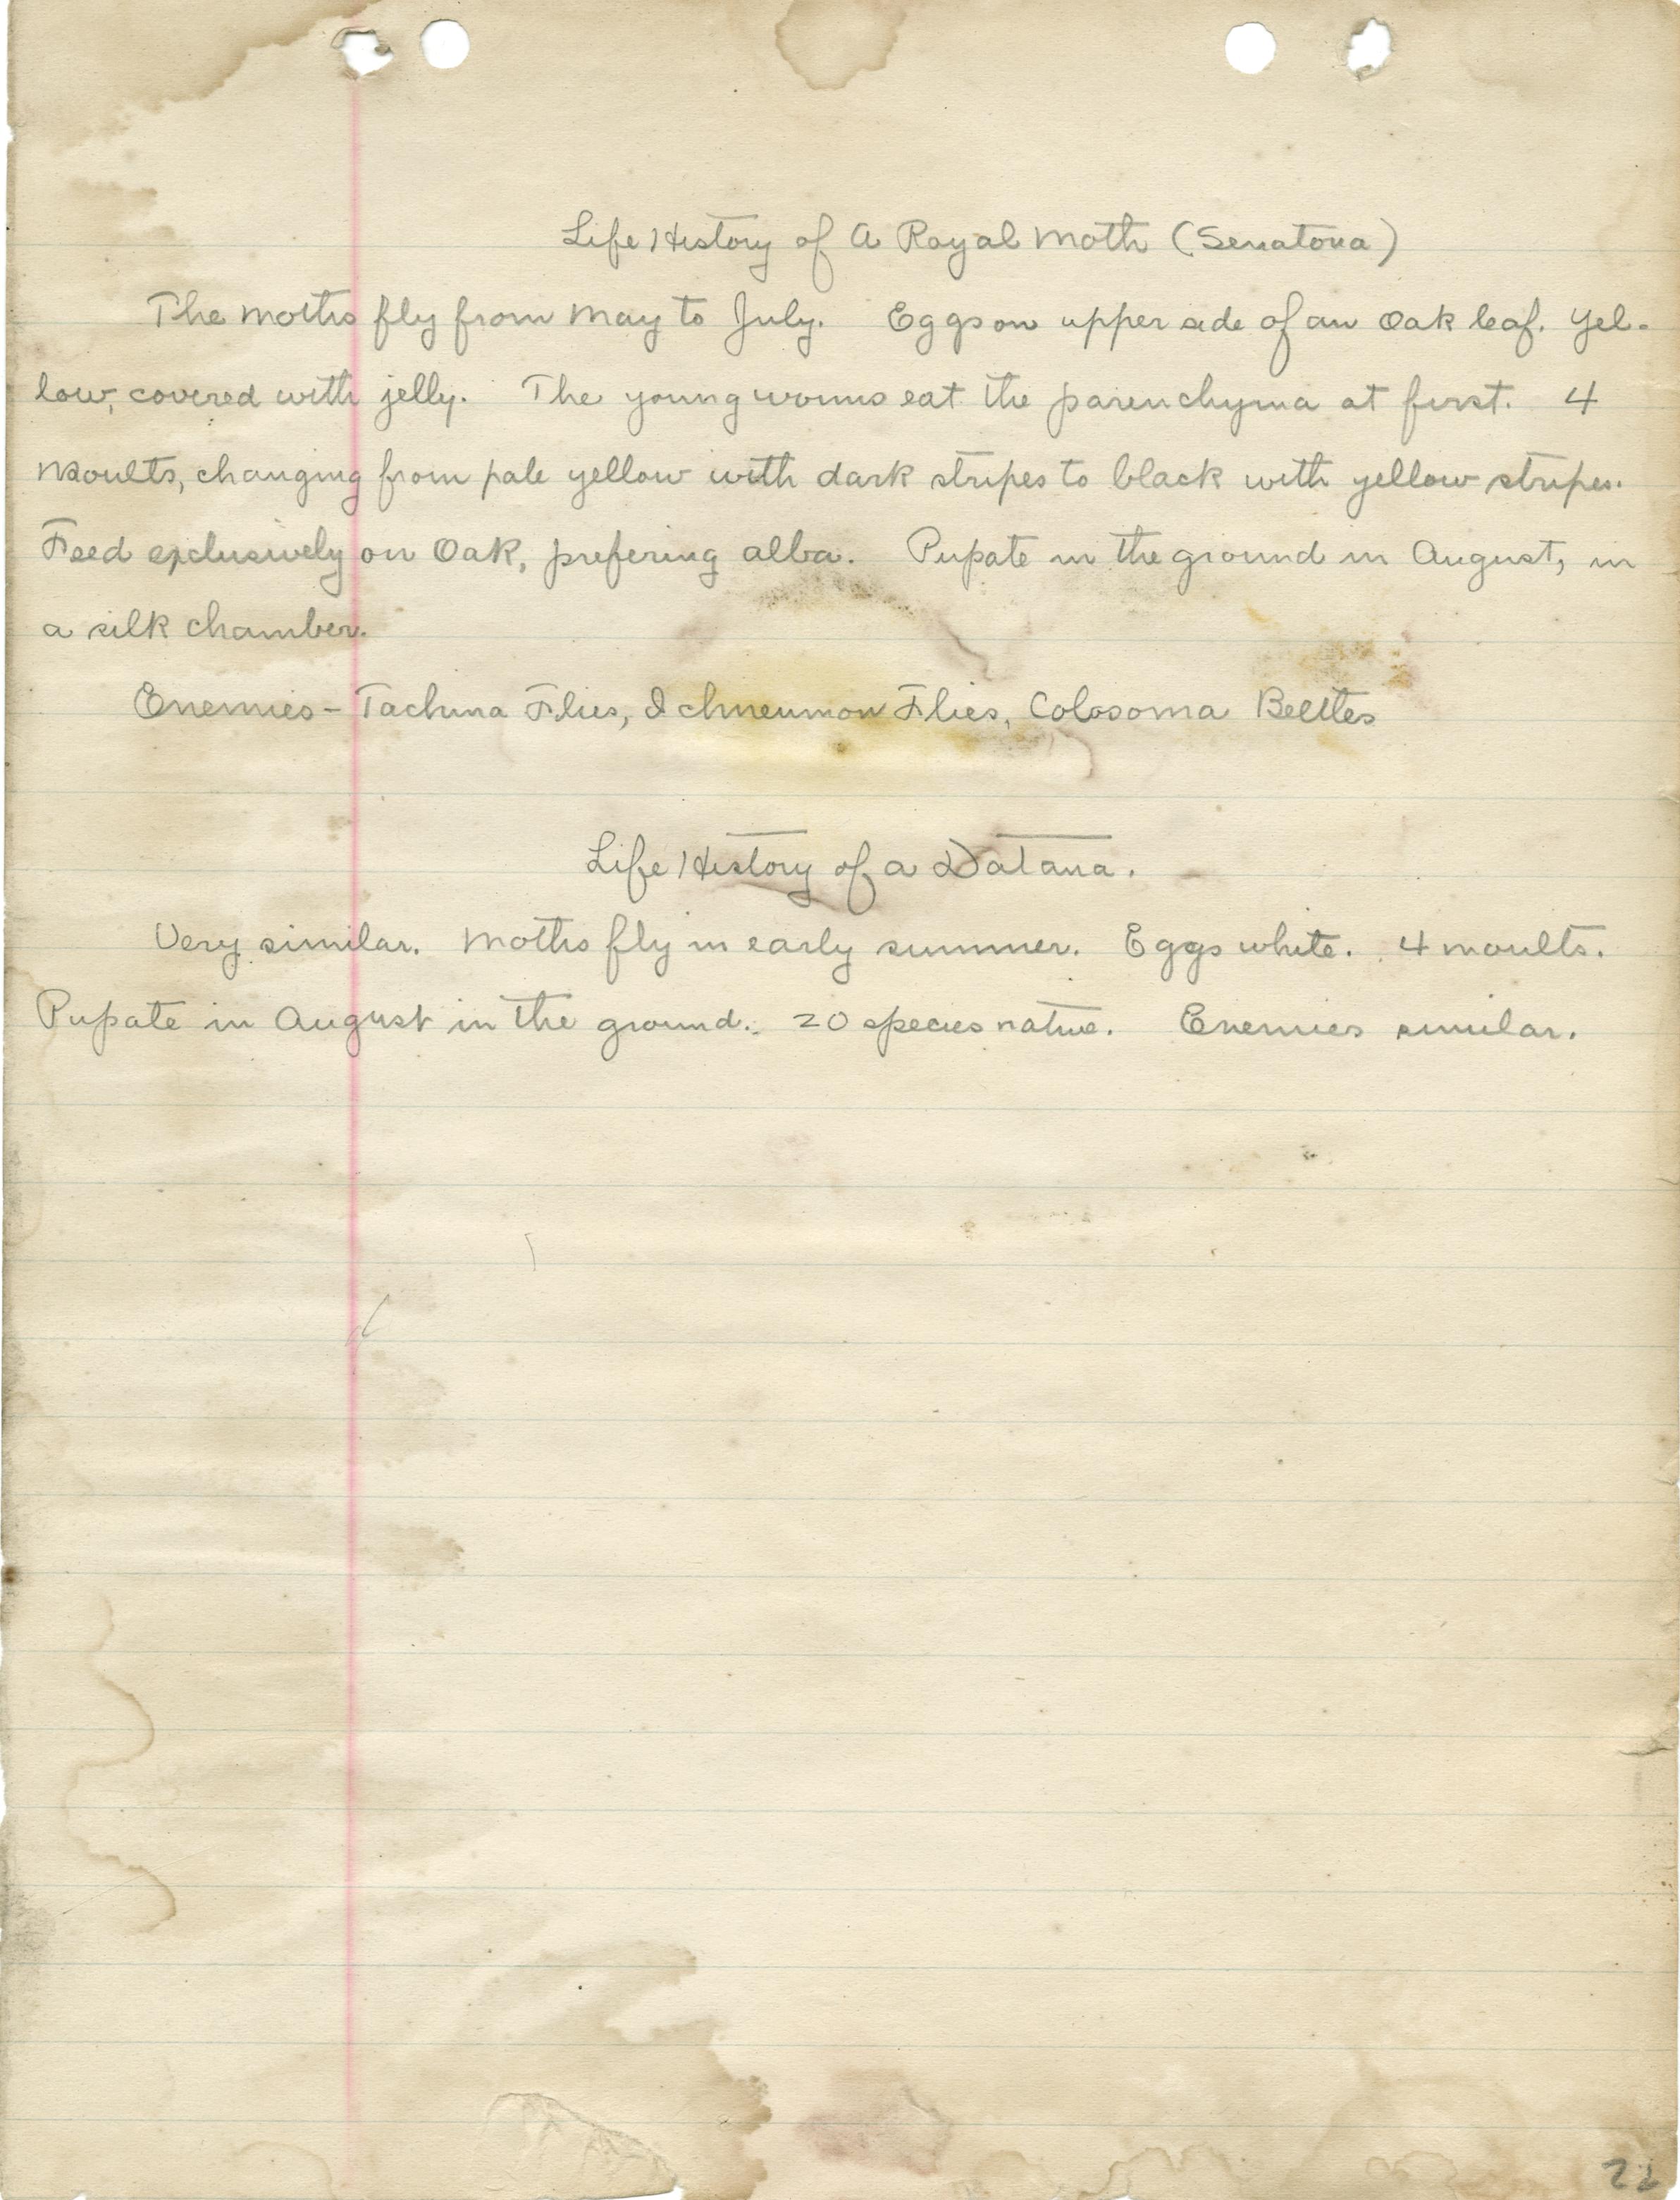 Life History of A Royal Moth (Senatoria)
The moths fly from May to July. Eggs on upper side of an Oak leaf. Yel-
low, covered with jelly. The young worms eat the parenchyma at first. 4
Moults, changing from pale yellow with dark stripes to black with yellow stripes.
Feed exclusively on Oak, prefering alba. Pupate in the ground in August, in
a silk chamber.
Enemies - Tachina Flies, Ichneumon Flies, Colosoma Beetles
Life History of a Datana.
Very similar. Moths fly in early summer. Eggs white. 4 moults.
Pupate in August in the ground. 20 species native. Enemies similar.